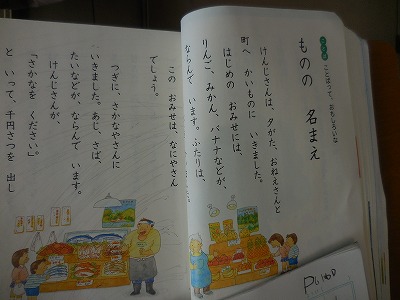 ことばって、おもしろいな
ものの 名まえ
けんじさんは、夕がた、おねえさんと
町へ かいものに いきました。
はじめの おみせには、
りんご、みかん、バナナなどが、
ならんで います。ふたりは、
この おみせは、なにやさん
でしょう。
つぎに、さかなやさんに
いきました。あじ、さば、
たいなどが、ならんで います。
けんじさんが、
「さかなを ください。」
と いって、千円さつを 出し